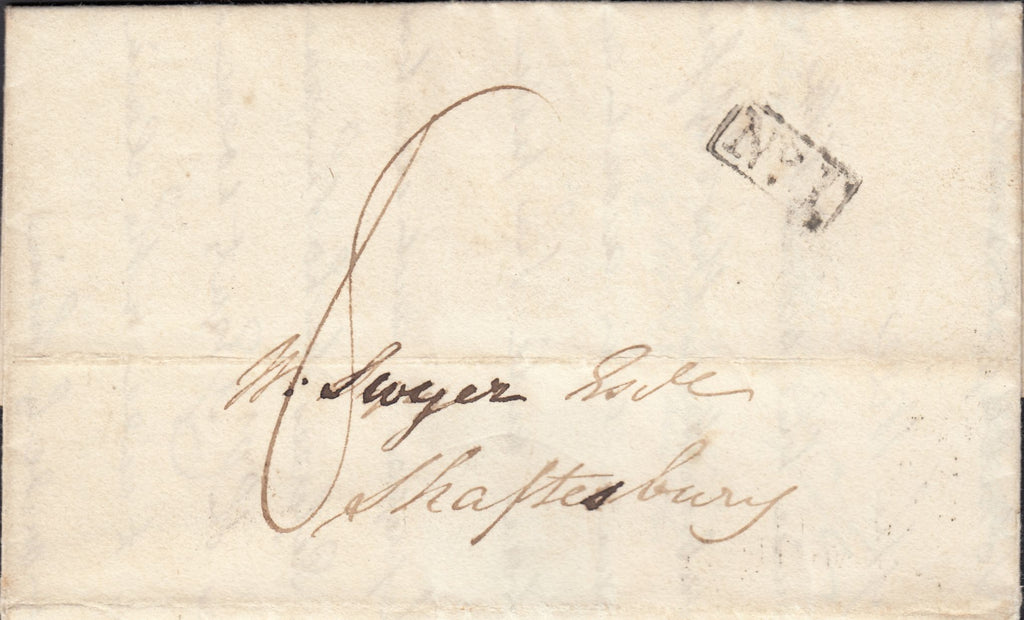 No. 1
W. Swyer Esqre
Shaftesbury